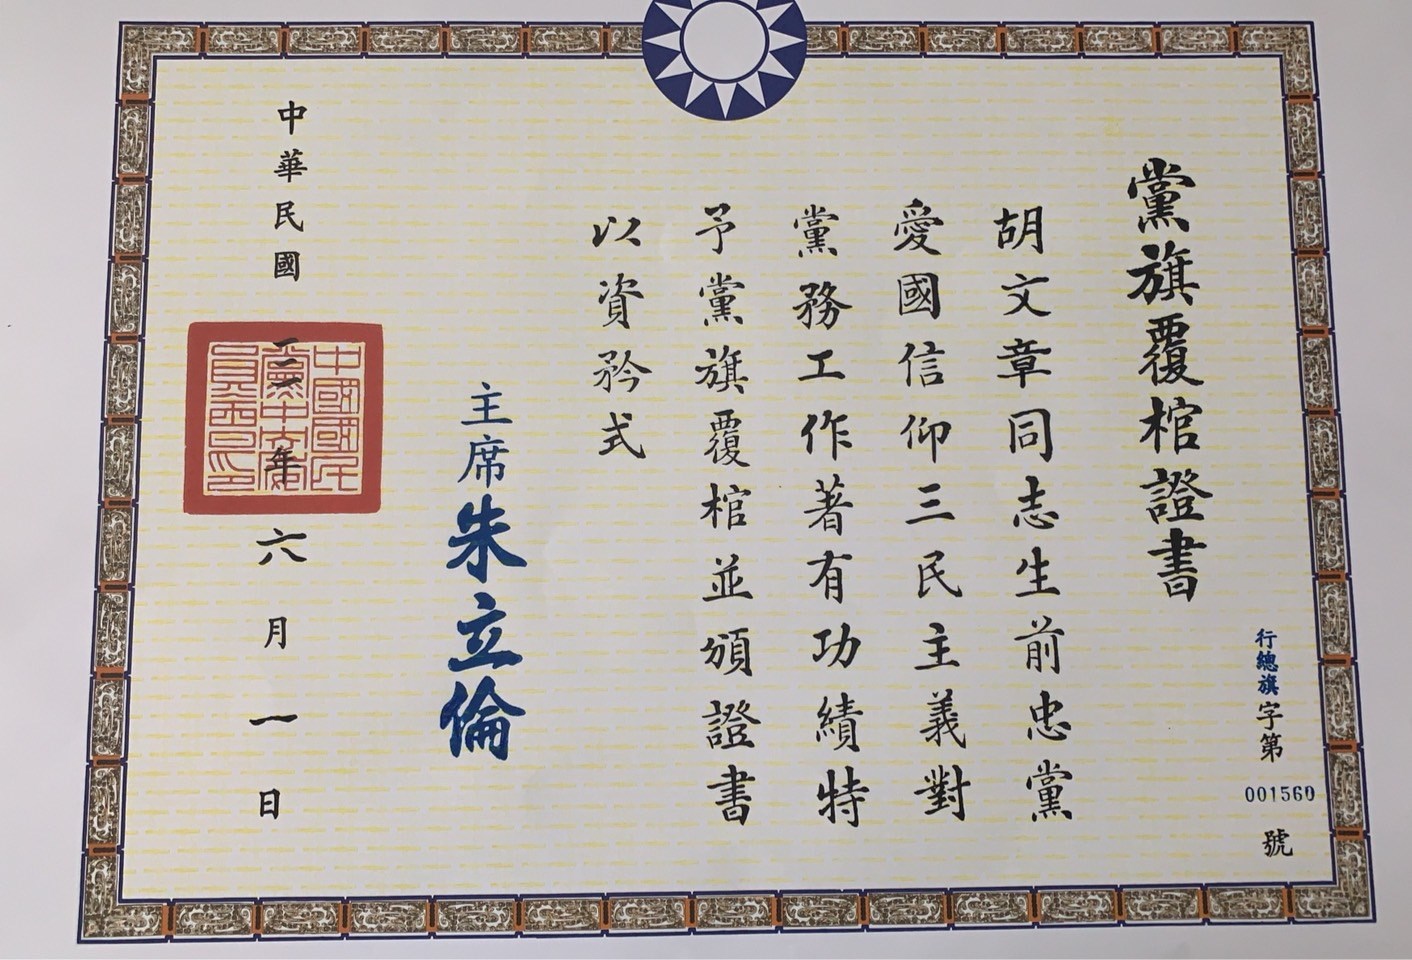 黨旗覆棺證書
行總旗字第001560號
胡文章同志生前忠黨
愛國信仰三民主義對
黨務工作著有功績特
予黨旗覆棺並頒證書
以資矜式
主席朱立倫
中華民國一一二年六月一日
中國國民
黨中央委
員會印